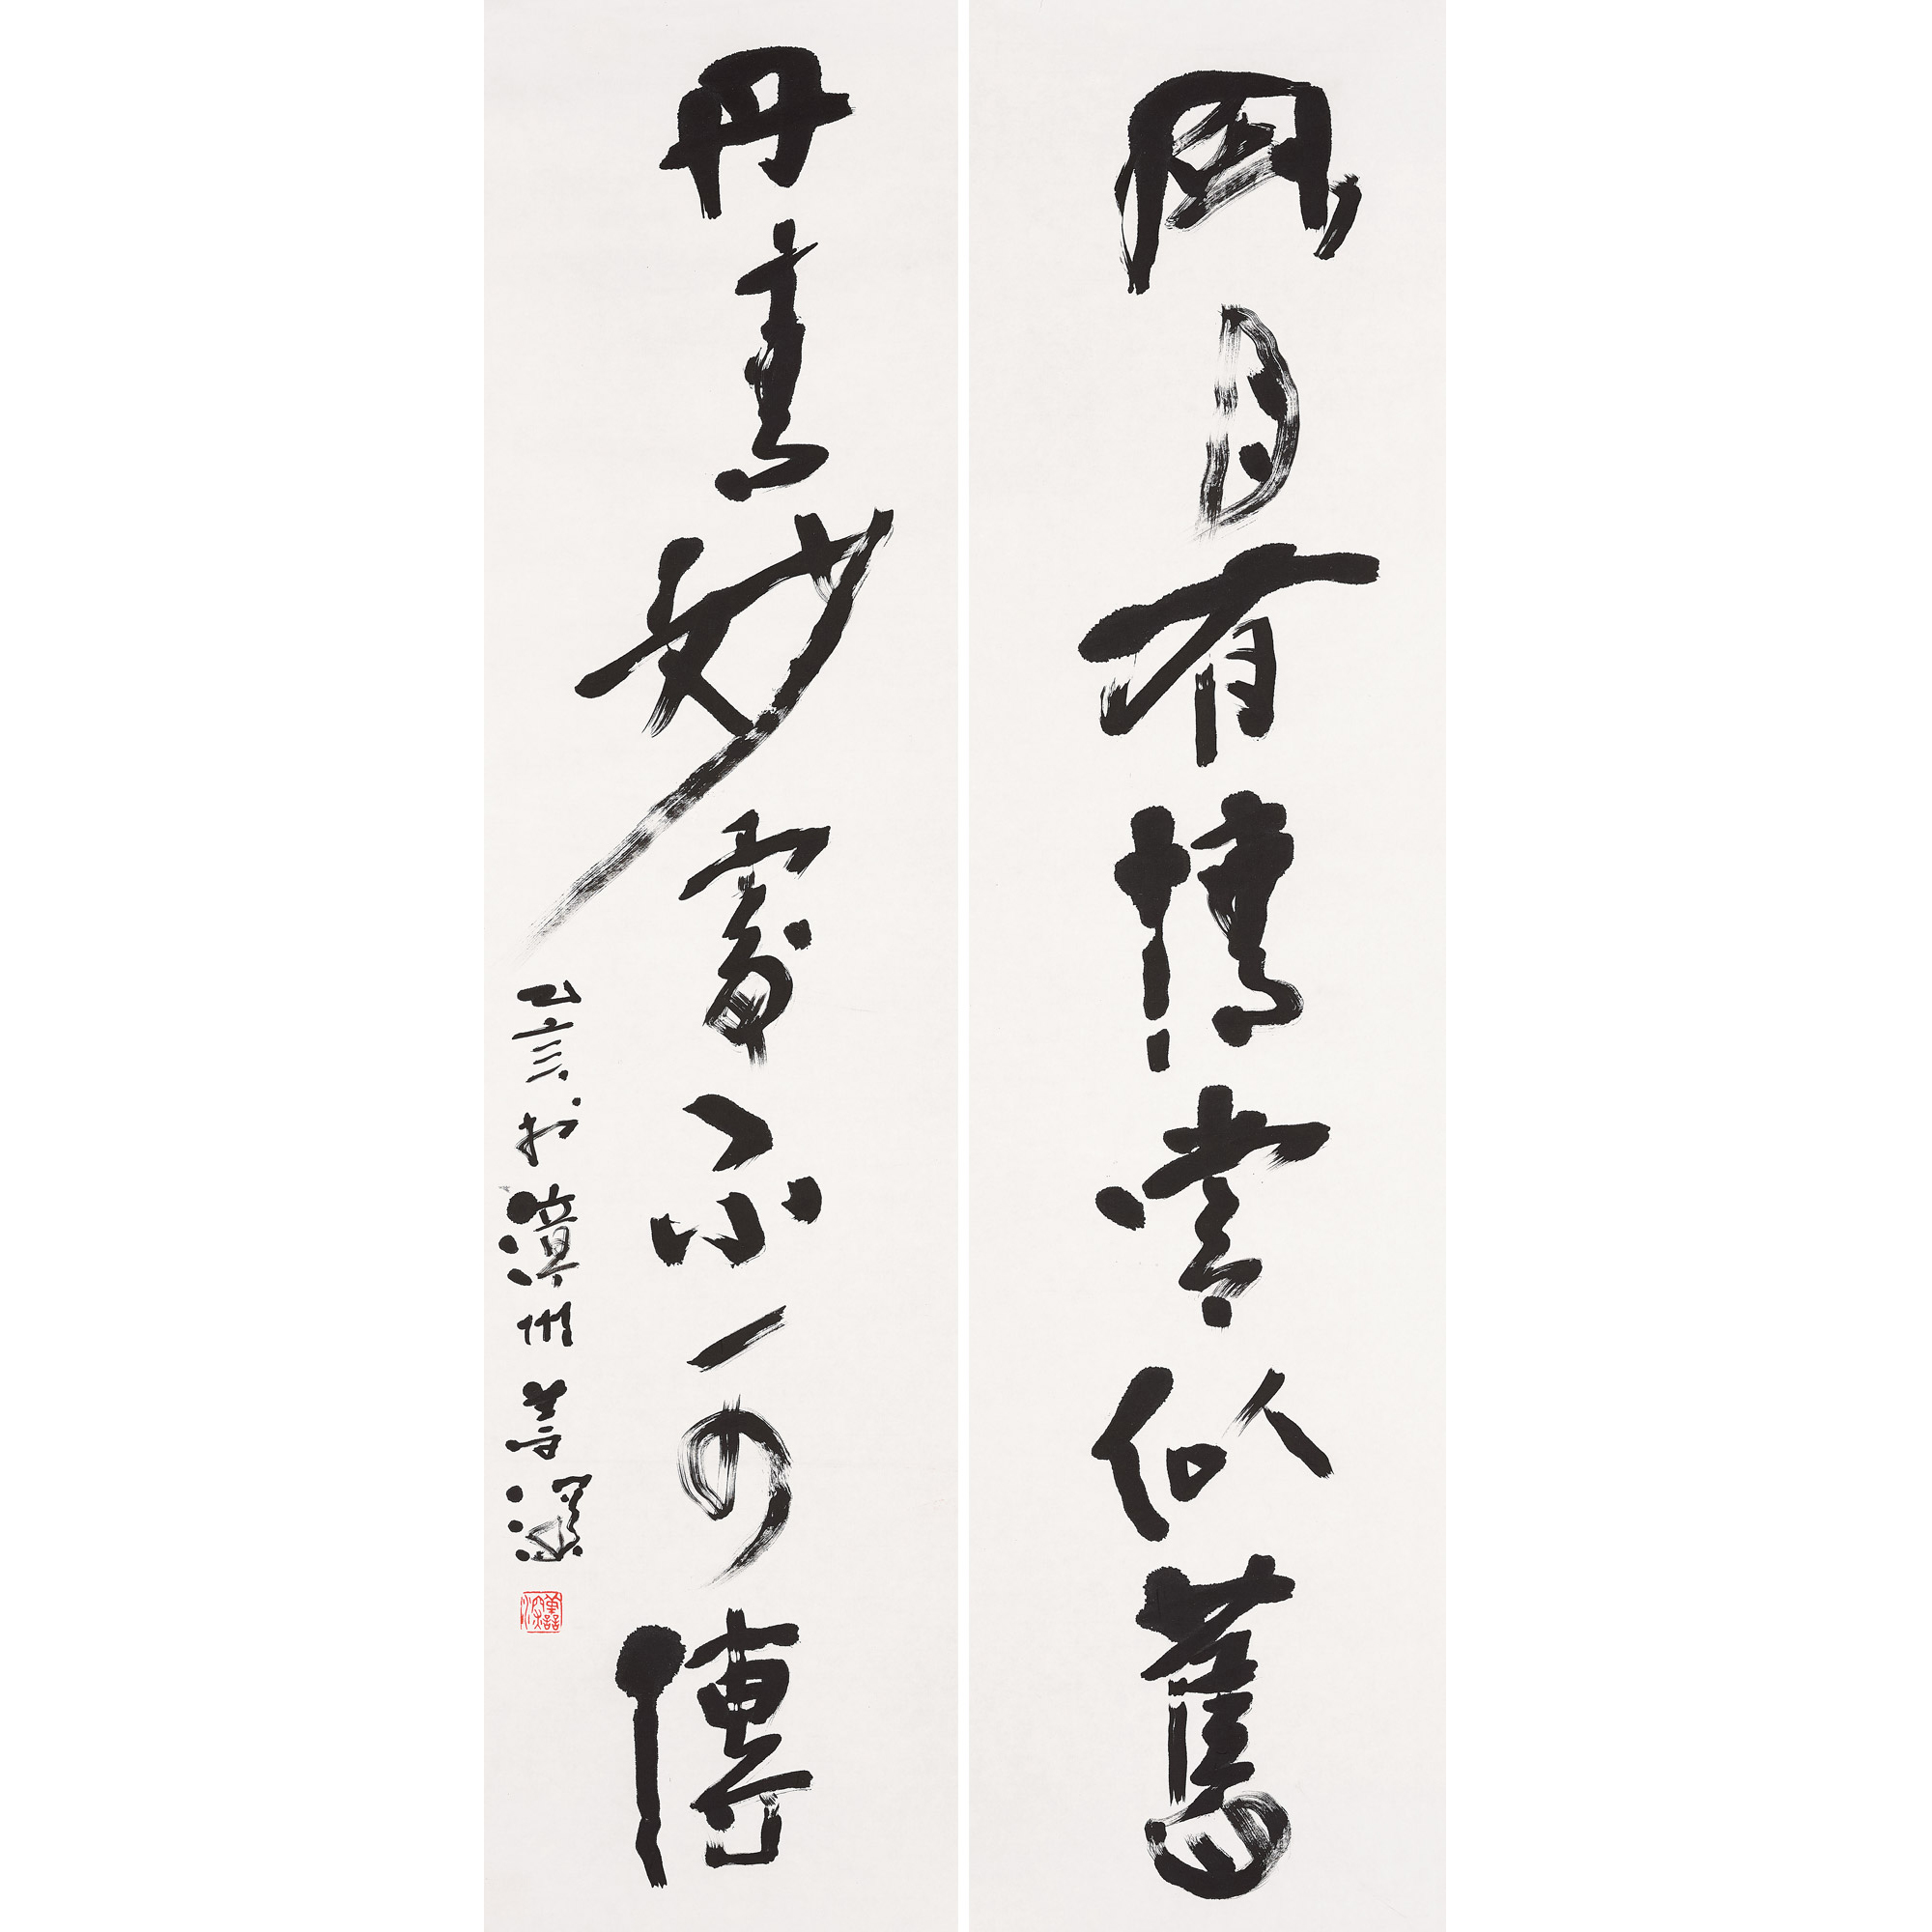 風月有情常似舊
丹青妙處不可傳
乙言於漳州善深